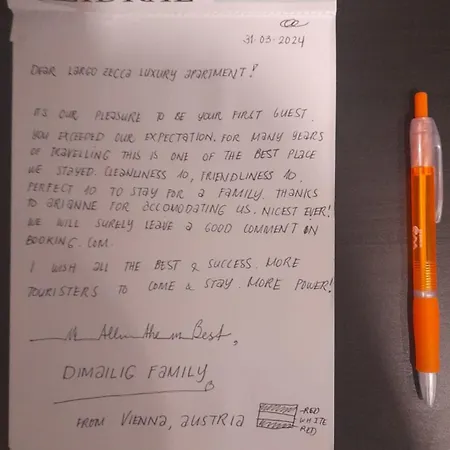 31-03-2024
DEAR LARGO ZECCA LUXURY APARTMENT!
IT'S OUR PLEASURE TO BE YOUR FIRST GUEST.
YOU EXCEEDED OUR EXPECTATION. FOR MANY YEARS
OF TRAVELLING THIS IS ONE OF THE BEST PLACE
WE STAYED. CLEANLINESS 10, FRIENDLINESS 10.
PERFECT 10 TO STAY FOR A FAMILY. THANKS
TO ARIANNE FOR ACCOMODATING US. NICEST EVER!
WE WILL SURELY LEAVE A GOOD COMMENT ON
BOOKING.COM.
I WISH ALL THE BEST & SUCCESS. MORE
TOURISTERS TO COME & STAY. MORE POWER!
All the Best,
DIMAILIG FAMILY
FROM VIENNA, AUSTRIA
-RED
WHITE
RED